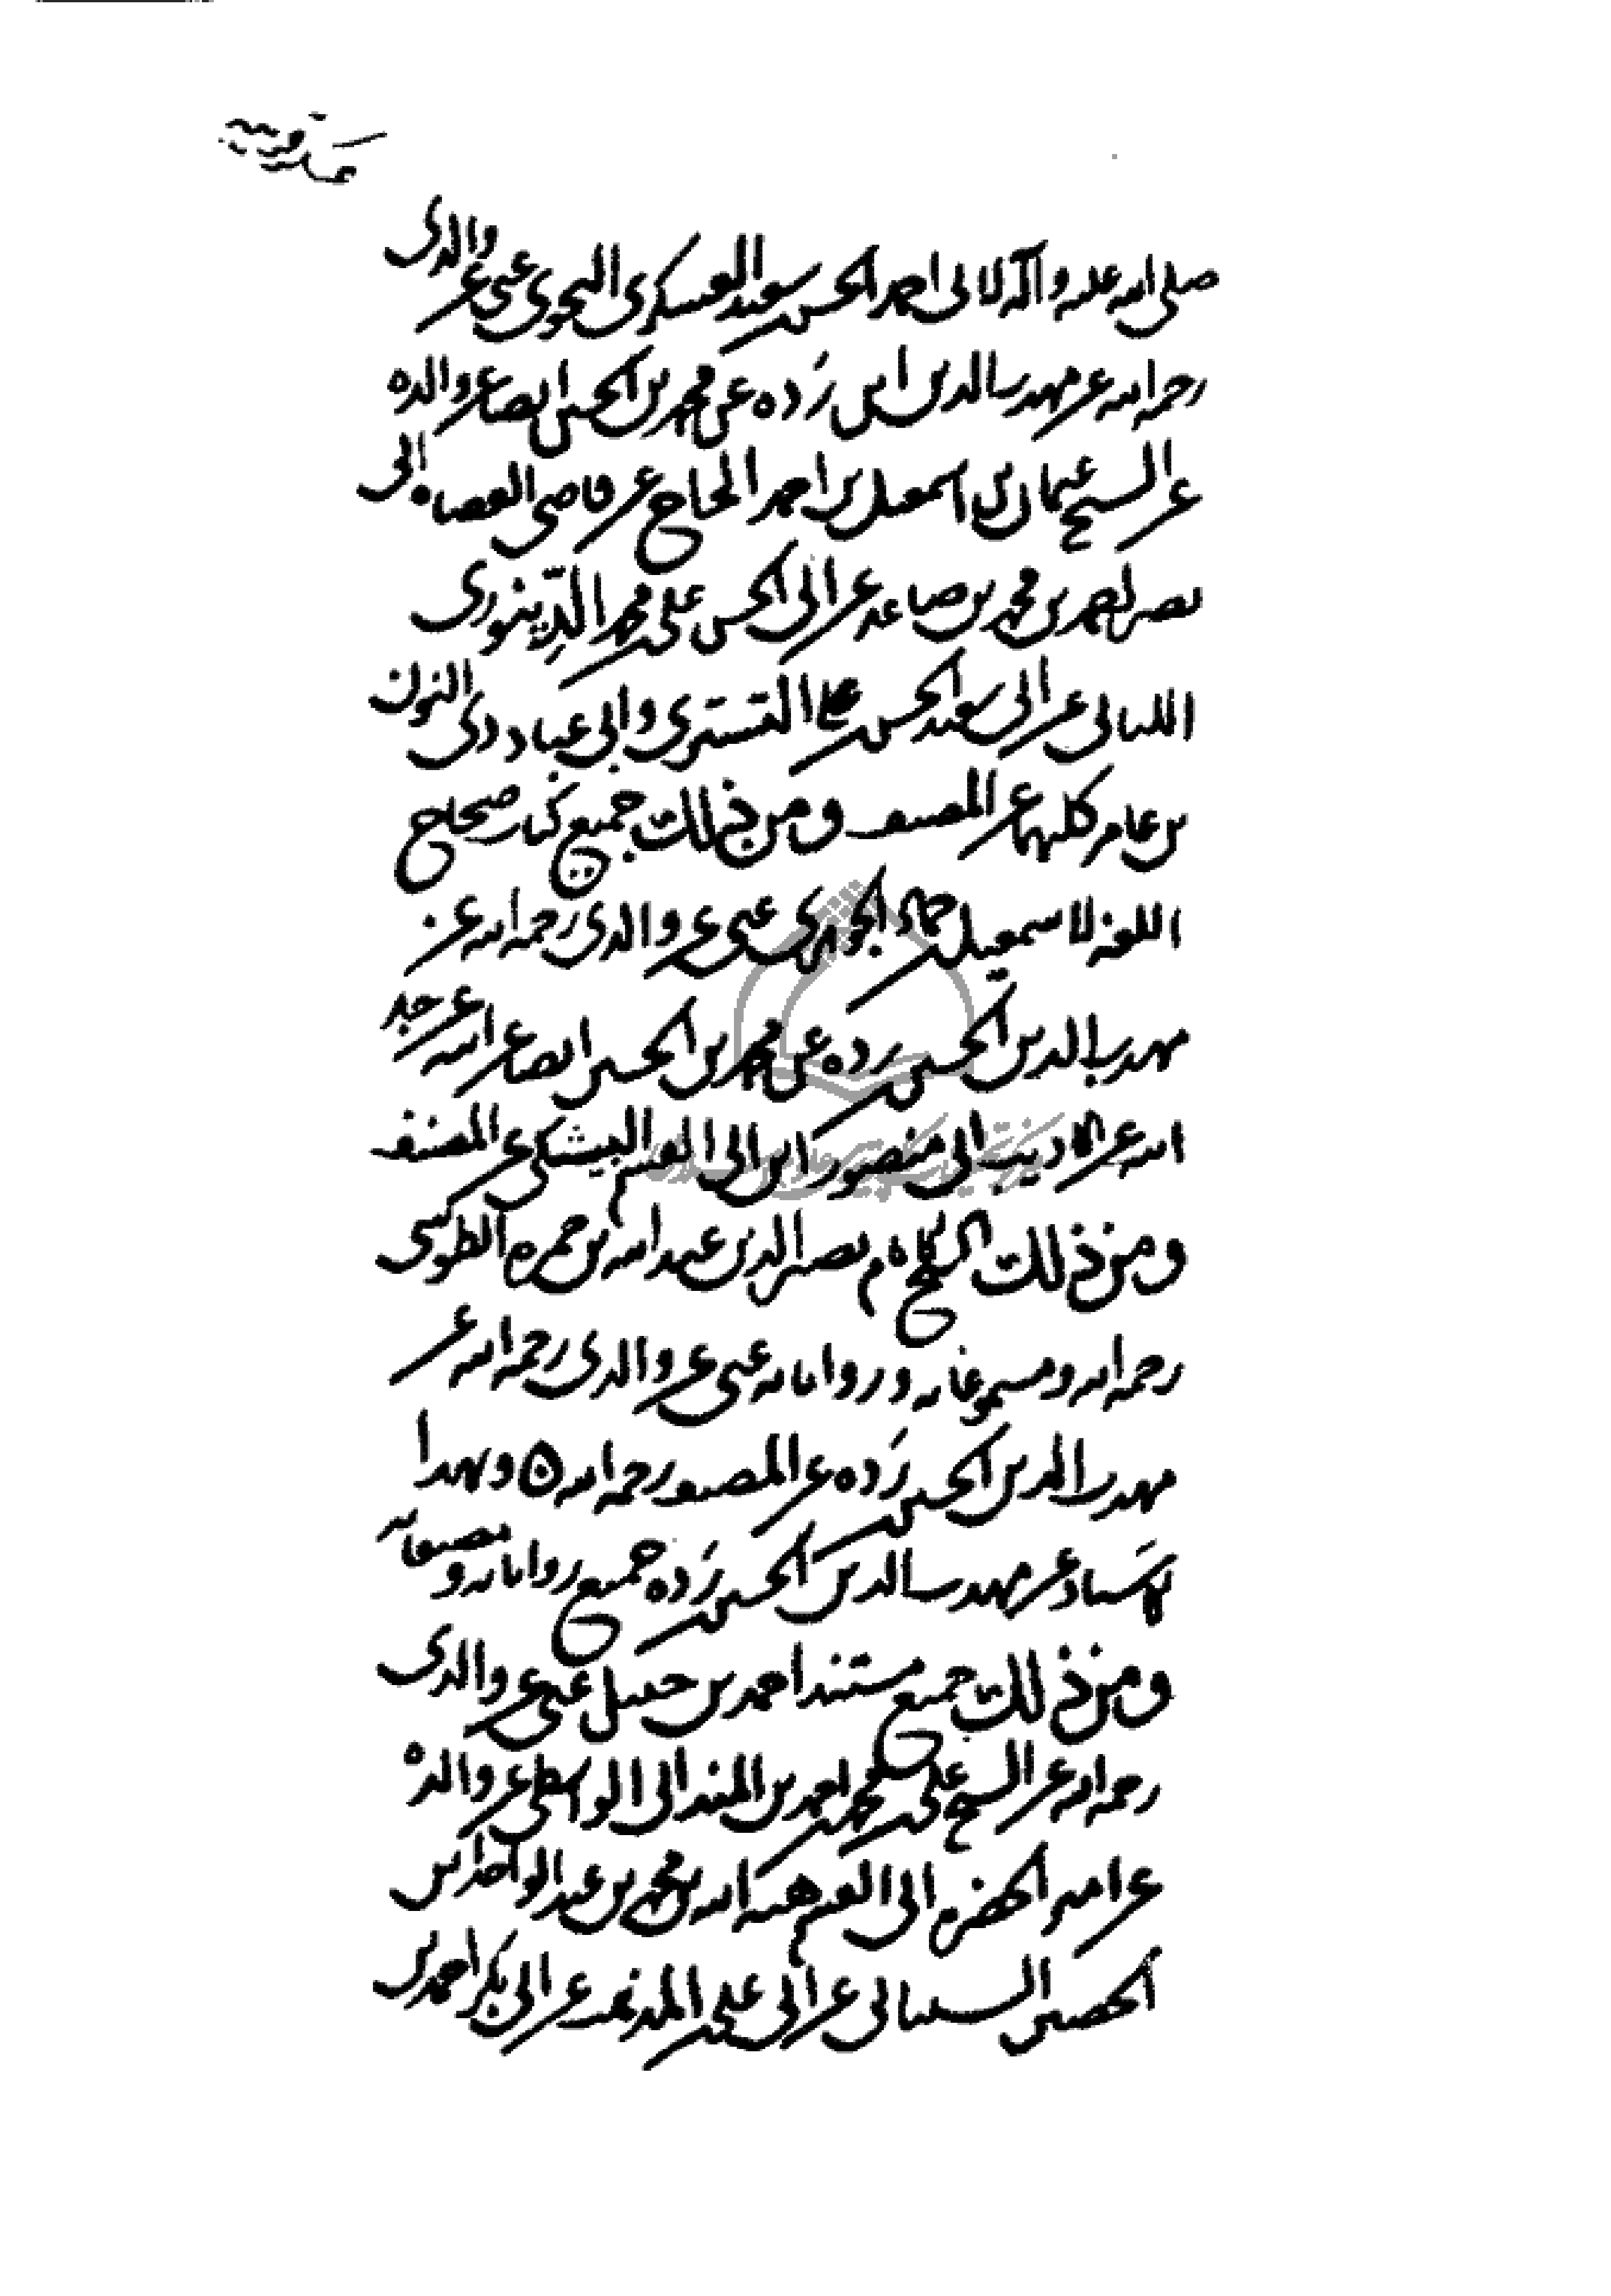 صلى الله عليه وآله لابي احمد الحسن بن سعيد العسكري النحوي عني عن والدي
رحمه الله عن مهذب الدين ابن رده عن محمد بن الحسين ايضا عن والده
عن الشيخ عثمان بن اسمعيل بن احمد الحاج عن قاضي القضاة ابي
نصر احمد بن محمد بن صاعد عن ابي الحسن علي بن محمد الدينوري
اللبناني عن ابي سعيد الحسن بن علي التستري وابي عباد ذي النون
بن عامر كليهما عن المصنف ومن ذلك جميع كتاب صحاح
اللغة لاسمعيل بن حماد الجوهري عني عن والدي رحمه الله عن
مهذب الدين الحسين بن رده عن محمد بن الحسين ايضا عن ابيه عن جد
ابيه عن الاديب ابي منصور ابن ابي القسم البيشكي عن المصنف
ومن ذلك الشيخ الامام نصير الدين عبد الله بن حمزة الطوسي
رحمه الله ومسموعاته ورواياته عني عن والدي رحمه الله عن
مهذب الدين الحسين بن رده عن المصنف رحمه الله وبهذا
الاسناد عن مهذب الدين الحسين بن رده جميع رواياته ومصنفاته
ومن ذلك جميع مسند احمد بن حنبل عني عن والدي
رحمه الله عن الشيخ علي بن محمد بن احمد بن المندائي الواسطي عن والده
عن امير الحضرة ابي القسم هبة الله بن محمد بن عبد الواحد بن
الحصين السيباني عن ابي علي بن المذهب عن ابي بكر احمد بن